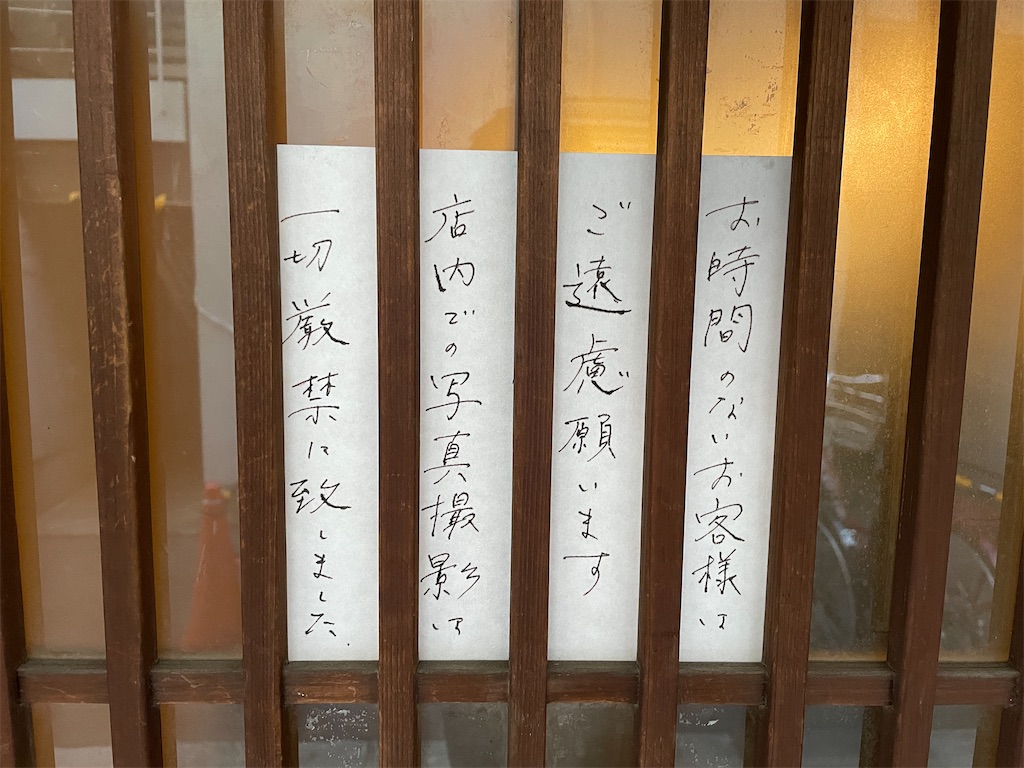 お時間のないお客様は
ご遠慮願います
店内での写真撮影は
一切厳禁に致しました.